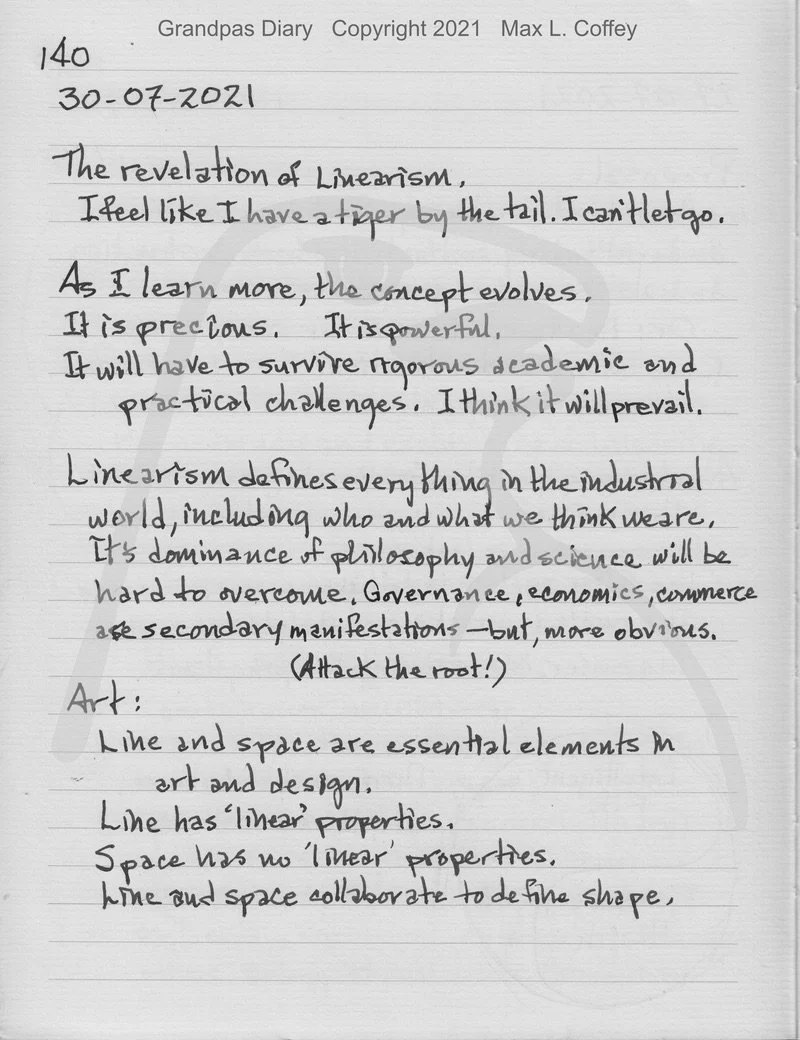 Grandpas Diary Copyright 2021 Max L. Coffey
140
30-07-2021
The revelation of Linearism.
I feel like I have a tiger by the tail. I can't let go.
As I learn more, the concept evolves.
It is precious. It is powerful.
It will have to survive rigorous academic and
practical challenges. I think it will prevail.
Linearism defines everything in the industrial
world, including who and what we think we are.
It's dominance of philosophy and science will be
hard to overcome. Governance, economics, commerce
are secondary manifestations - but, more obvious.
(Attack the root!)
Art:
Line and space are essential elements in
art and design.
Line has 'linear' properties.
Space has no 'linear' properties.
Line and space collaborate to define shape.